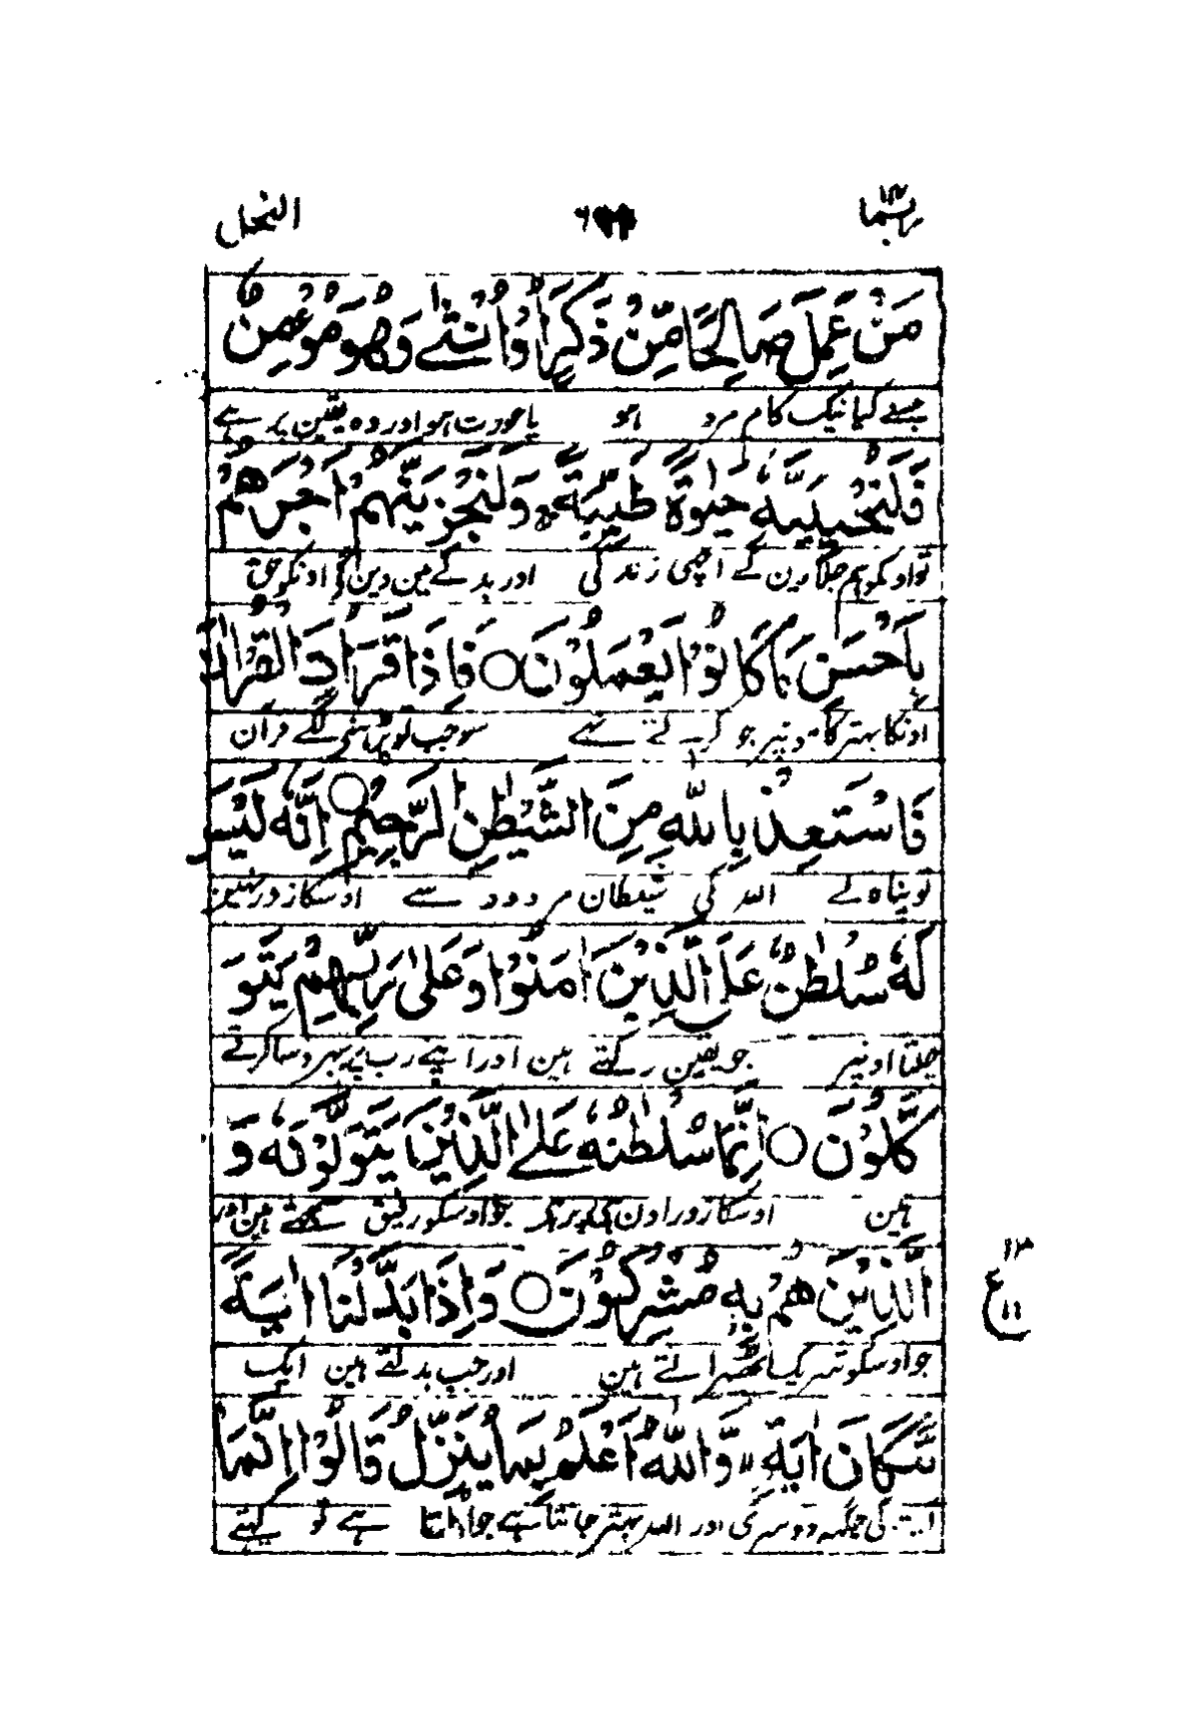 ربما ١٤
النحل
مَنْ عَمِلَ صَالِحًا مِّنْ ذَكَرٍ اَوْ اُنْثٰى وَهُوَ مُؤْمِنٌ
جسنے کیا نیک کام مرد ہو یا عورت ہو اور وہ یقین پر ہے
فَلَنُحْيِيَنَّهٗ حَيٰوةً طَيِّبَةً ۚ وَلَنَجْزِيَنَّهُمْ اَجْرَهُمْ
تو اوسکو ہم جلاوین گے اچھی زندگی اور بدلے مین دین گے اونکو حق
بِاَحْسَنِ مَا كَانُوْا يَعْمَلُوْنَ ○ فَاِذَا قَرَاْتَ الْقُرْاٰنَ
اونکا بہتر کامونپر جو کرتے تھے سو جب تو پڑھنے لگے قرآن
فَاسْتَعِذْ بِاللّٰهِ مِنَ الشَّيْطٰنِ الرَّجِيْمِ ○ اِنَّهٗ لَيْسَ
تو پناہ لے اللہ کی شیطان مردود سے اوسکا زور نہین
لَهٗ سُلْطٰنٌ عَلَى الَّذِيْنَ اٰمَنُوْا وَعَلٰى رَبِّهِمْ يَتَوَ
چلتا اونپر جو یقین رکھتے ہین اور اپنے رب پر بھروسا کرتے
كَّلُوْنَ ○ اِنَّمَا سُلْطٰنُهٗ عَلَى الَّذِيْنَ يَتَوَلَّوْنَهٗ وَ
ہین اوسکا زور اون ہی پر ہے جو اوسکو رفیق سمجھتے ہین اور
الَّذِيْنَ هُمْ بِهٖ مُشْرِكُوْنَ ○ وَاِذَا بَدَّلْنَا اٰيَةً
١٣
ع
١١
جو اوسکو شریک ٹھہراتے ہین اور جب بدلتے ہین ایک
مَّكَانَ اٰيَةٍ ۙ وَّاللّٰهُ اَعْلَمُ بِمَا يُنَزِّلُ قَالُوْا اِنَّمَا
آیت کی جگہہ دوسری اور اللہ بہتر جانتا ہے جو اتارتا ہے تو کہتے